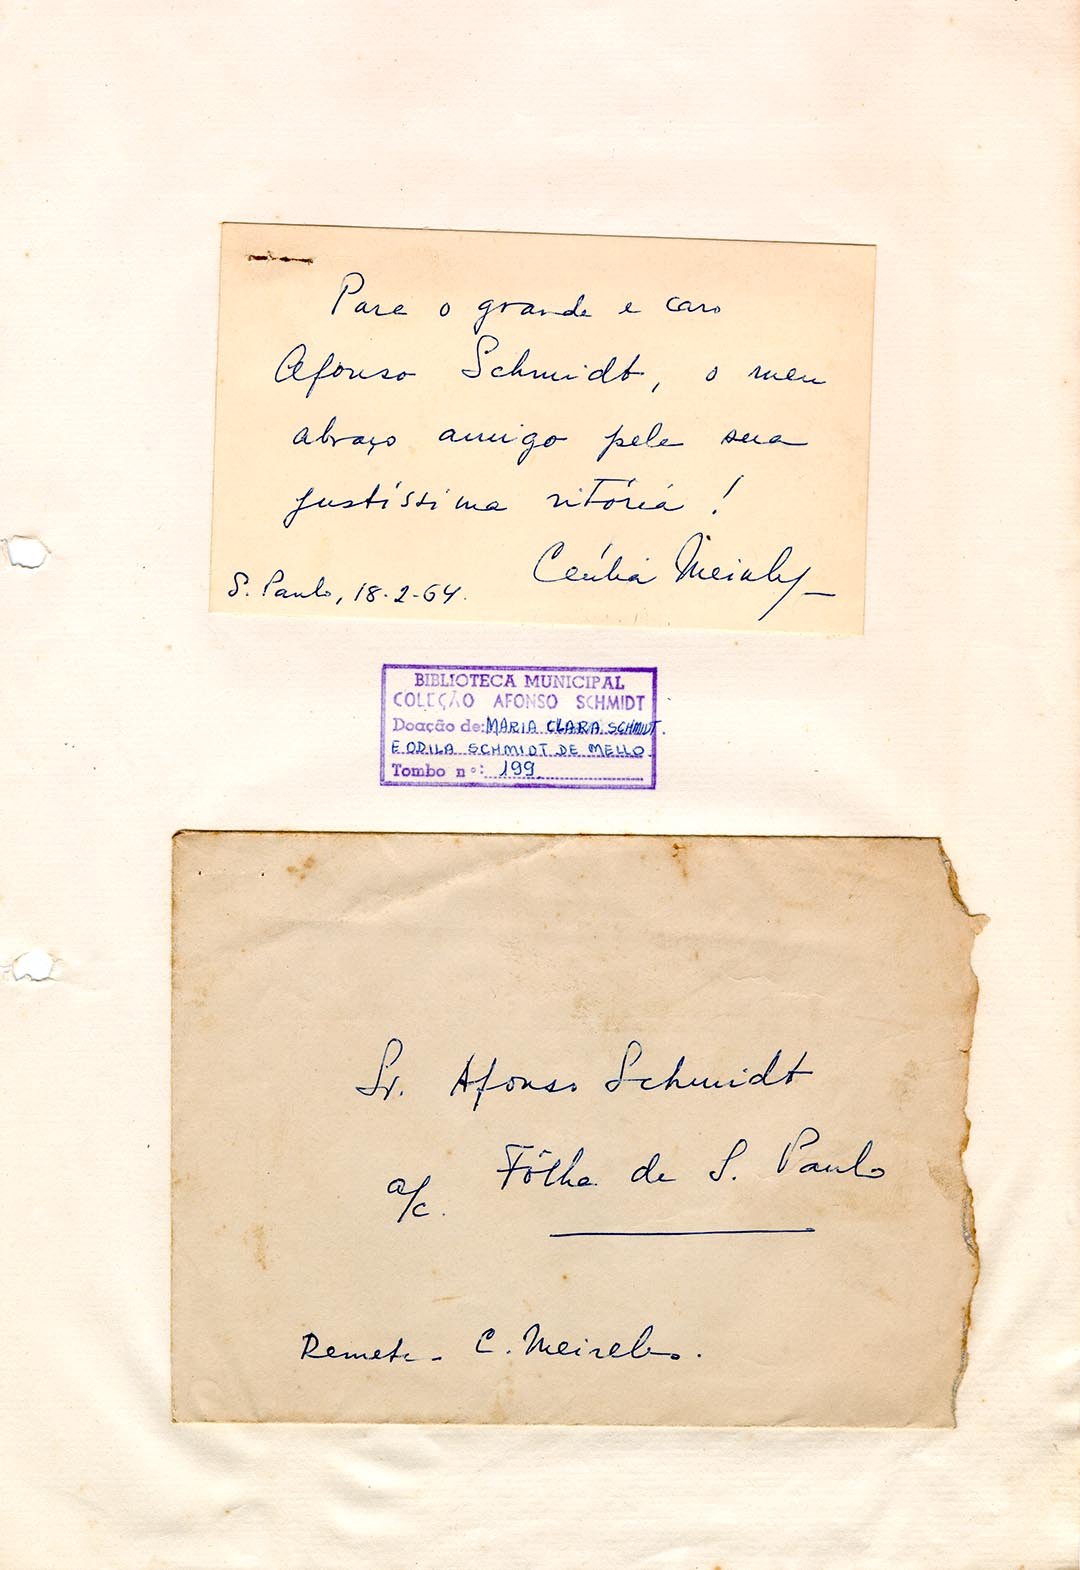 Para o grande e caro
Afonso Schmidt, o meu
abraço amigo pela sua
justíssima vitória!
Cecília Meireles
S. Paulo, 18-2-64.
BIBLIOTECA MUNICIPAL
COLEÇÃO AFONSO SCHMIDT
Doação de: MARIA CLARA SCHMIDT.
E ODILA SCHMIDT DE MELLO.
Tombo nº: 199
Sr. Afonso Schmidt
a/c. Fôlha de S. Paulo
Remete - C. Meireles.